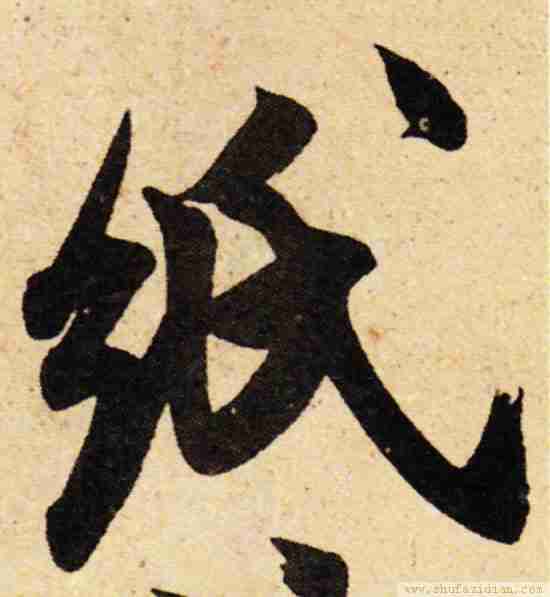 紙
www.shufazidian.com